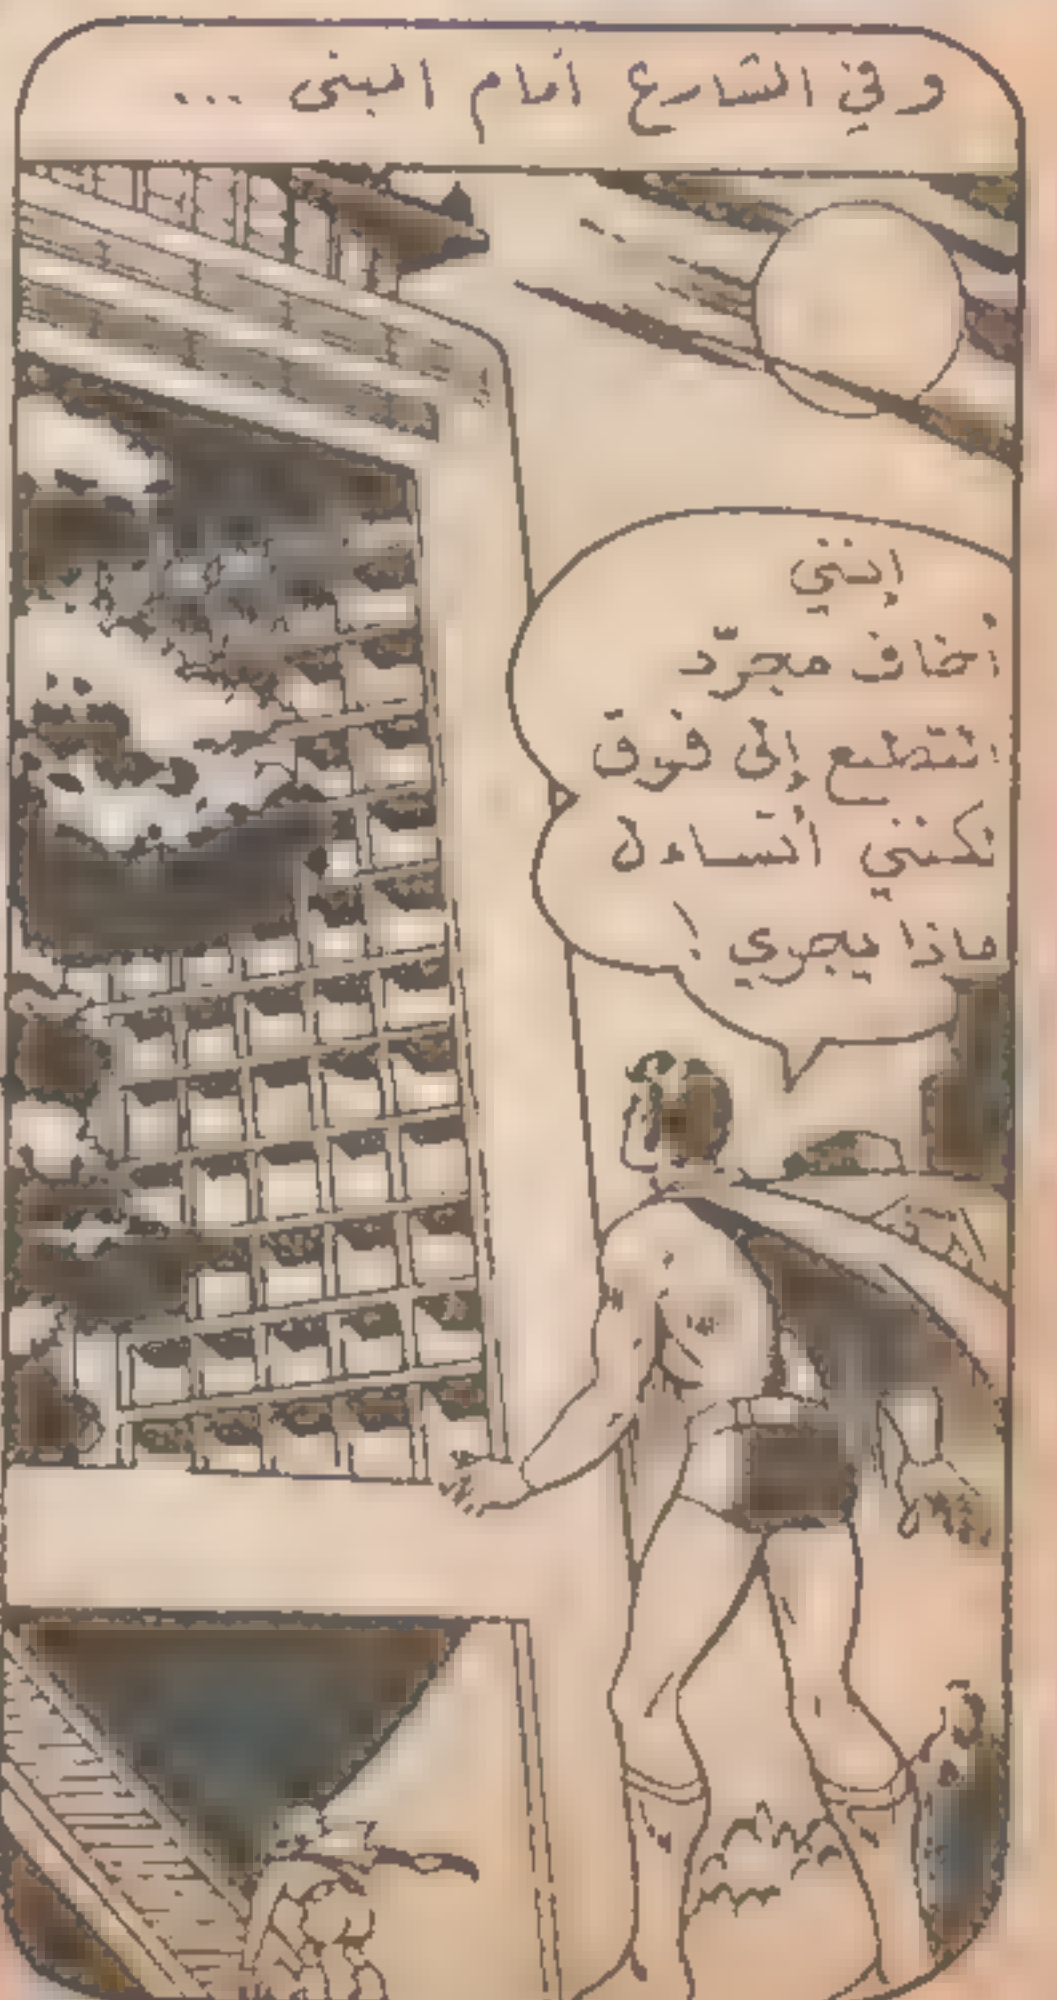 و في الشارع أمام المبنى ...
إنني
أخاف مجرّد
التطلع إلى فوق
لكنني أتساءل
ماذا يجري !